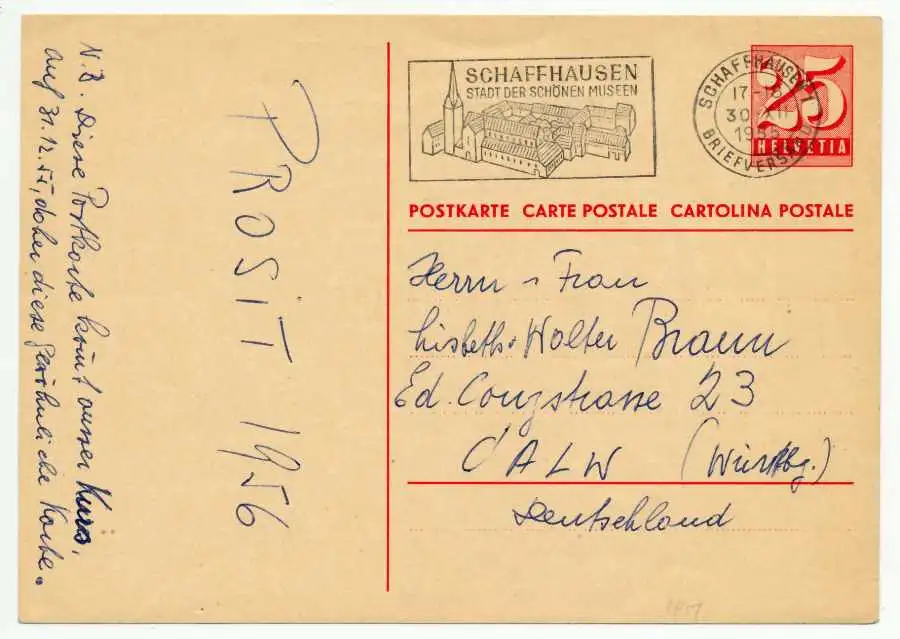 N.B. Diese Postkarte kommt ausser Kurs,
auf 31.12.55, daher diese gewöhnliche Karte.
PROSIT 1956
SCHAFFHAUSEN
STADT DER SCHÖNEN MUSEEN
SCHAFFHAUSEN 1
17-18
30.XII
1955
BRIEFVERSAND
25
HELVETIA
POSTKARTE CARTE POSTALE CARTOLINA POSTALE
Herrn u Frau
Lisbeth u Walter Braun
Ed. Conzstrasse 23
CALW (Württbg.)
Deutschland